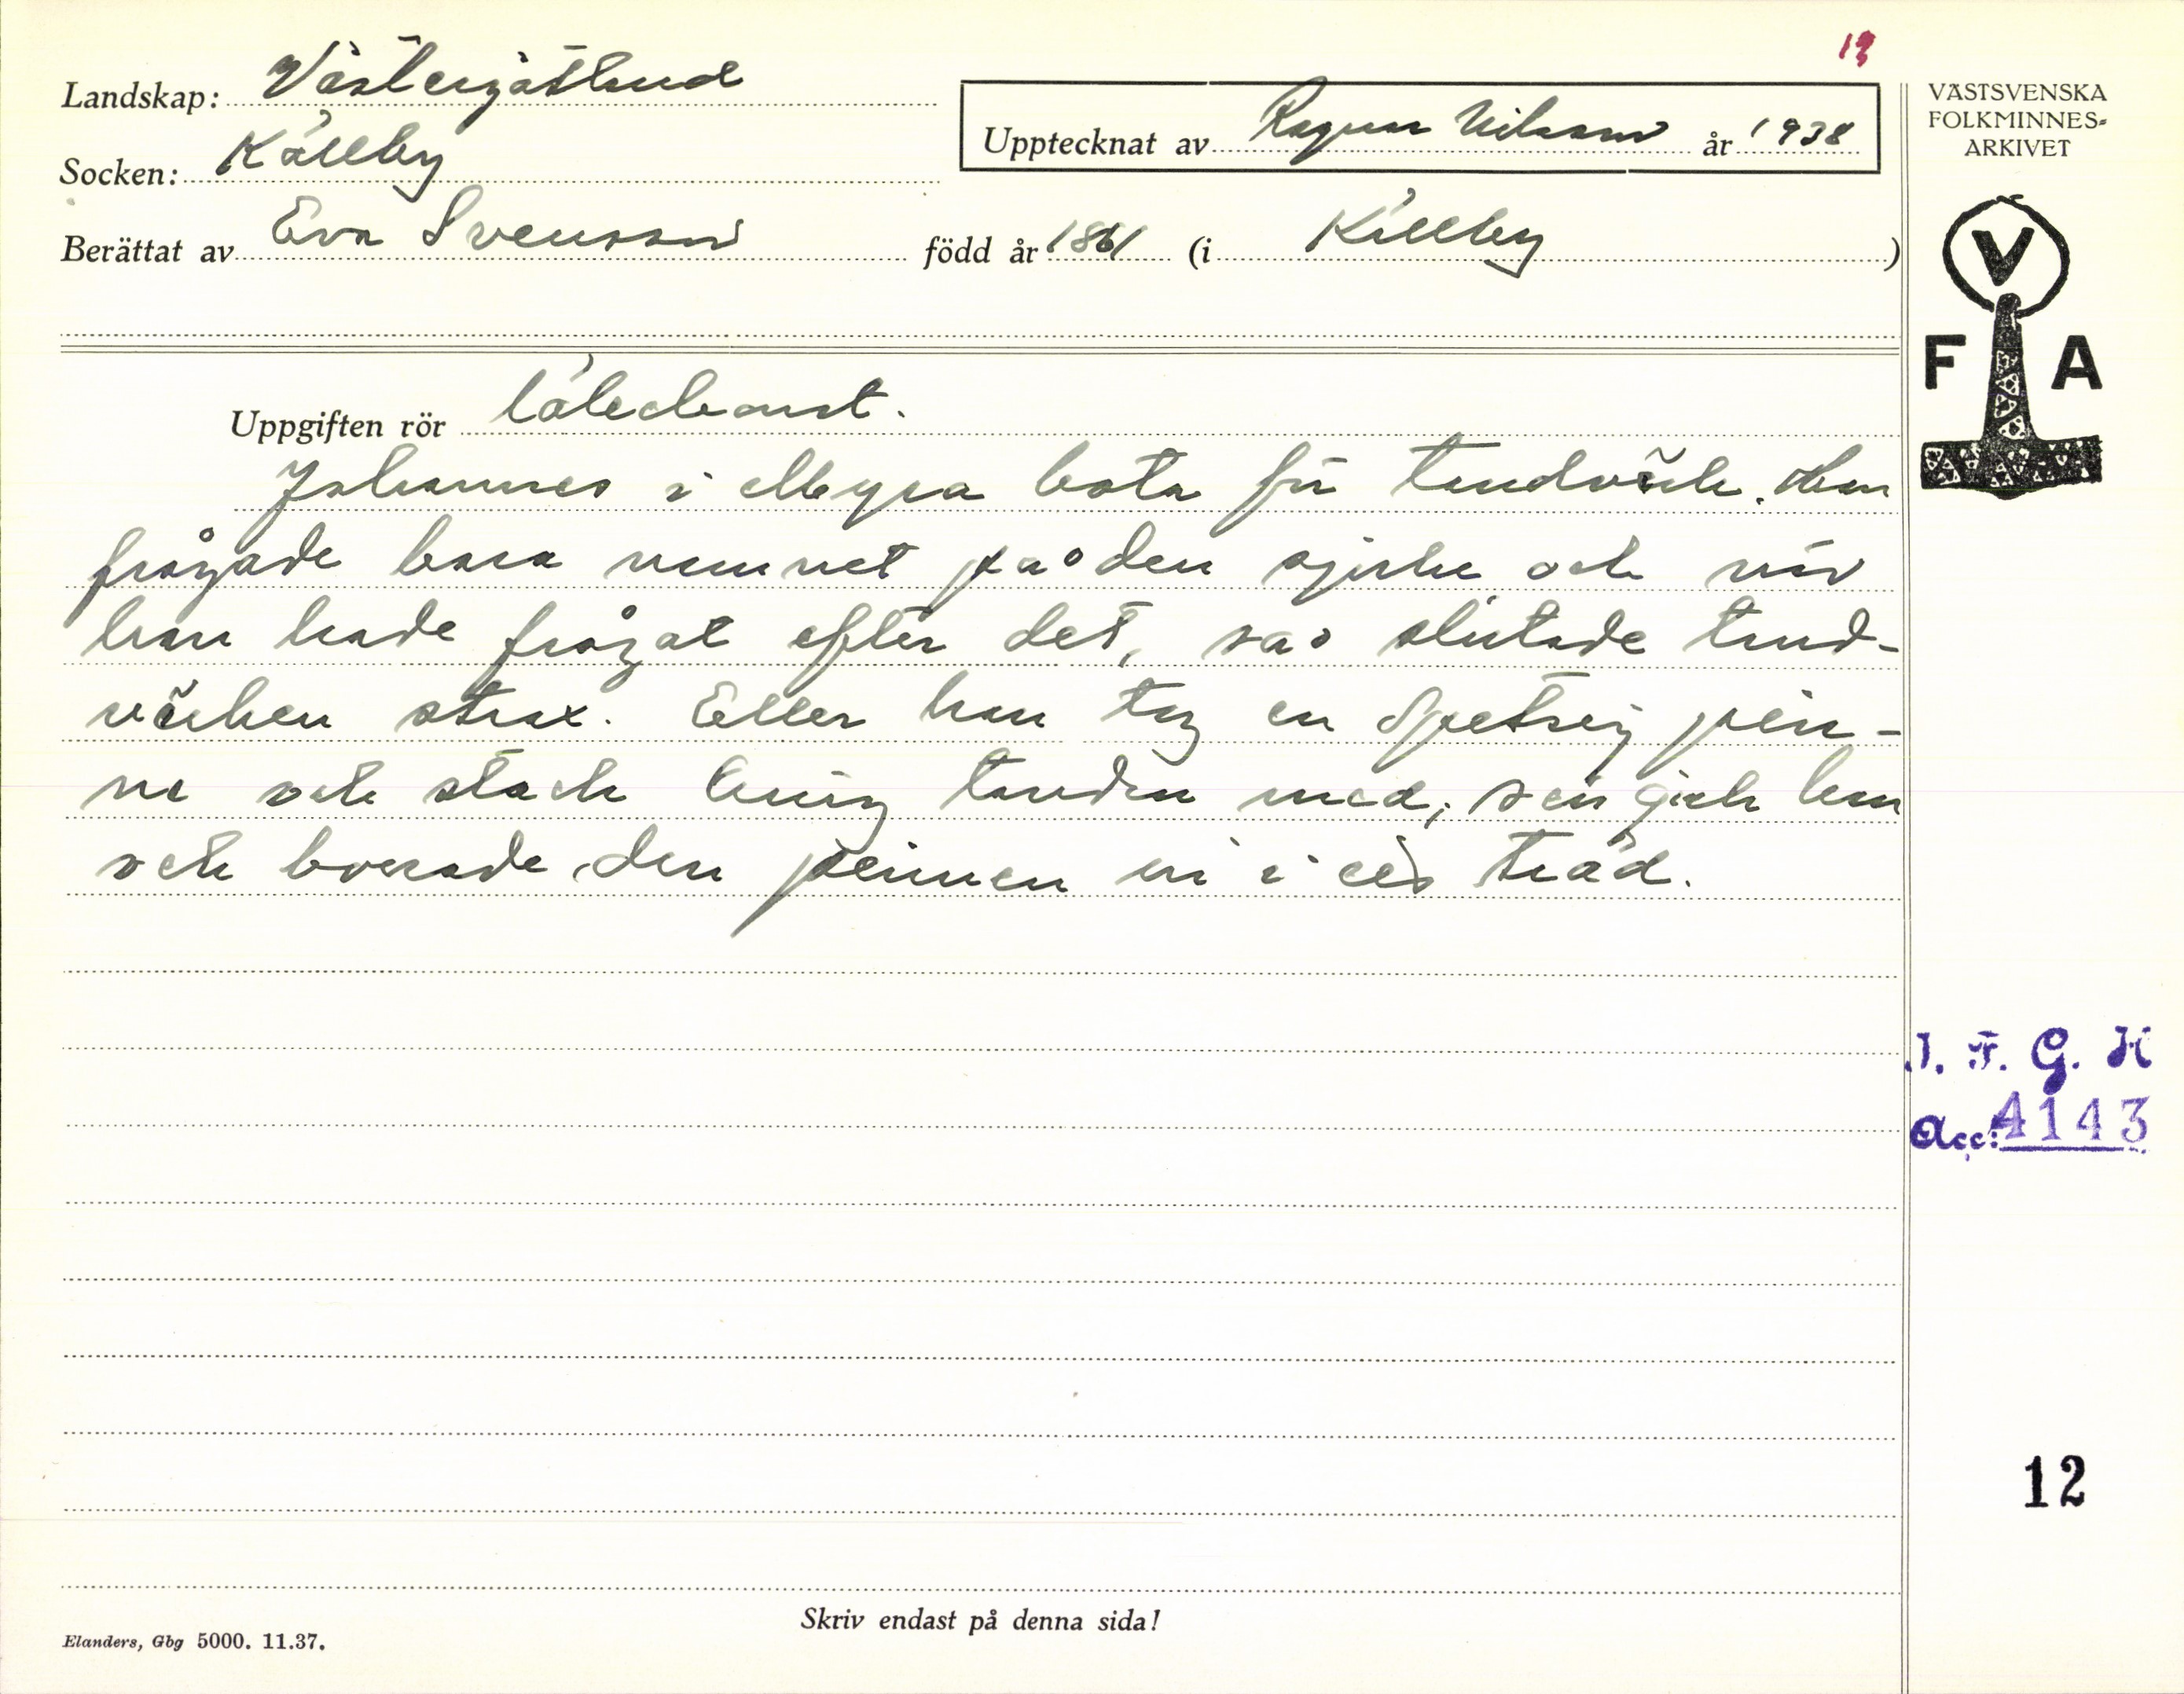 13
Landskap: Västergötland
Upptecknat av Ragnar Nilsson år 1938
Socken: Källby
Berättat av Eva Svensson född år 1861 (i Källby)
VÄSTSVENSKA
FOLKMINNES-
ARKIVET
V
F A
Uppgiften rör läkekonst.
Johannes i Myra bota för tandvärk. Han
frågade bara namnet på den sjuke och när
han hade frågat efter det, så slutade tand-
värken strax. Eller han tog en spetsig pin-
ne och stack kring tanden med; sen gick han
och borade den pinnen in i ett träd.
I. F. G. H
Acc: 4143
12
Skriv endast på denna sida!
Elanders, Gbg 5000. 11.37.